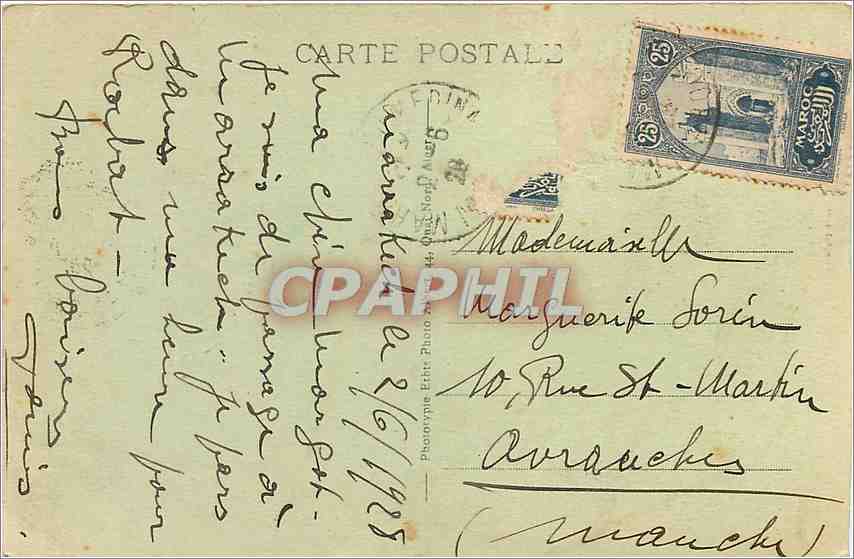 CARTE POSTALE
Marrakech le 2/6/1928
Ma chère Margot -
Je suis de passage à
Marrakech. Je pars
dans une heure pour
Rabat -
Bons baisers
MEDINA
6
28
MAR
25
25
MAROC
Phototypie Etbts Photo Albert 44, Quai Nord Alger
CPAPHIL
Mademoiselle
Marguerite Sorin
10, Rue St-Martin
Avranches
(Manche)